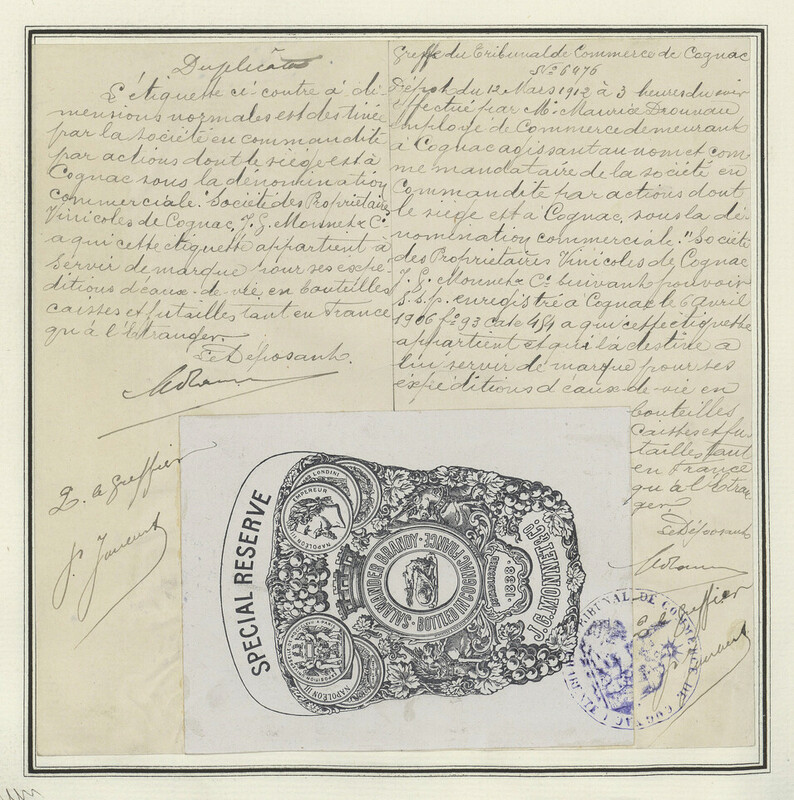 Duplicata
L'étiquette ci contre à di
mensions normales est destinée
par la société en commandite
par actions dont le siège est à
Cognac sous la dénomination
commerciale: "Société des Propriétaires
Vinicoles de Cognac, J. G. Monnet & Cº
a qui cette étiquette appartient à
servir de marque pour ses expé-
ditions d'eaux-de-vie en bouteilles
caisses et futailles tant en France
qu'à l'Etranger.
Le Déposant.
P. le Greffier
Greffe du Tribunal de Commerce de Cognac
Nº 6476
Dépot du 12 Mars 1912 à 3 heures du soir
effectué par Mr Maurice Drounau
Employé de Commerce demeurant
à Cognac agissant au nom et com
me mandataire de la société en
Commandite par actions dont
le siège est à Cognac, sous la dé-
nomination commerciale "Société
des Propriétaires Vinicoles de Cognac
J. G. Monnet & Cº suivant pouvoir
s.s.p. enregistré à Cognac le 6 avril
1906 fº 93 case 454 a qui cette étiquette
appartient et qui la destine a
lui servir de marque pour ses
expéditions d'eaux-de-vie en
bouteilles
caisses et fu-
tailles tant
en France
qu'à l'Etran
ger.
Le Déposant
P. le Greffier
SPECIAL RESERVE
NAPOLEON III EMPEREUR
LONDINI
NAPOLEON III
SALAMANDER BRANDY
BOTTLED IN COGNAC FRANCE
1838
J.G. MONNET & Cº
TRIBUNAL DE COMMERCE DE COGNAC